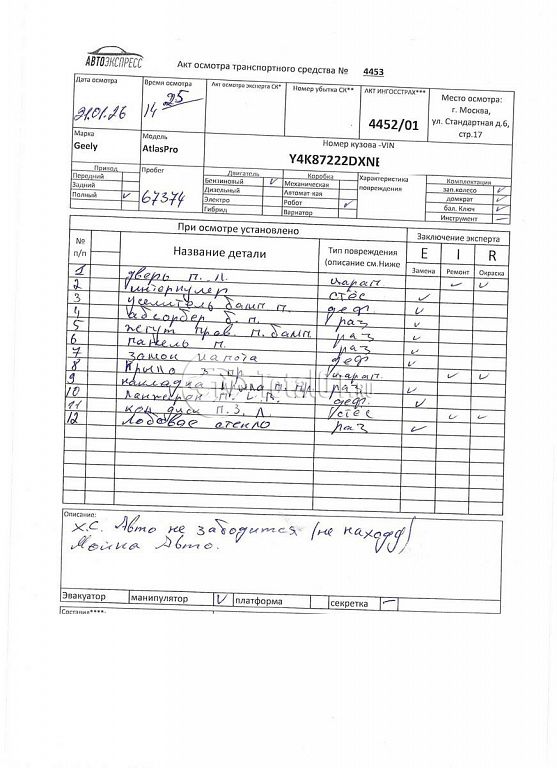 АВТОЭКСПРЕСС
Акт осмотра транспортного средства № 4453
Дата осмотра
21.01.26
Время осмотра
14 25
Акт осмотра эксперта СК*
Номер убытка СК**
АКТ ИНГОССТРАХ***
4452/01
Место осмотра:
г. Москва,
ул. Стандартная д.6,
стр.17
Марка
Geely
Модель
AtlasPro
Номер кузова -VIN
Y4K87222DXNE
Привод
Передний
Задний
Полный ✓
Пробег
67374
Двигатель
Бензиновый ✓
Дизельный
Электро
Гибрид
Коробка
Механическая
Автомат-кая
Робот ✓
Вариатор
Характеристика
повреждения
Комплектация
зап.колесо ✓
домкрат ✓
бал. Ключ ✓
Инструмент –
При осмотре установлено
Заключение эксперта
№
п/п
Название детали
Тип повреждения
(описание см.Ниже
E I R
Замена Ремонт Окраска
1 дверь п. л. царап ✓ ✓
2 интеркулер
3 усилитель бамп п. ✓
4 абсорбер б. п. деф ✓
5 жгут пров. п. бамп раз ✓
6 панель п. раз ✓
7 замок капота деф ✓
8 крыло з пр царап. ✓ ✓
9 накладка раз ✓
10 Лонжерон п. деф. ✓
11 ✓ ✓
12 лобовое стекло раз ✓
Описание:
Х.С. Авто не заводится (не на ходу)
Мойка Авто.
Эвакуатор манипулятор ✓ платформа секретка –